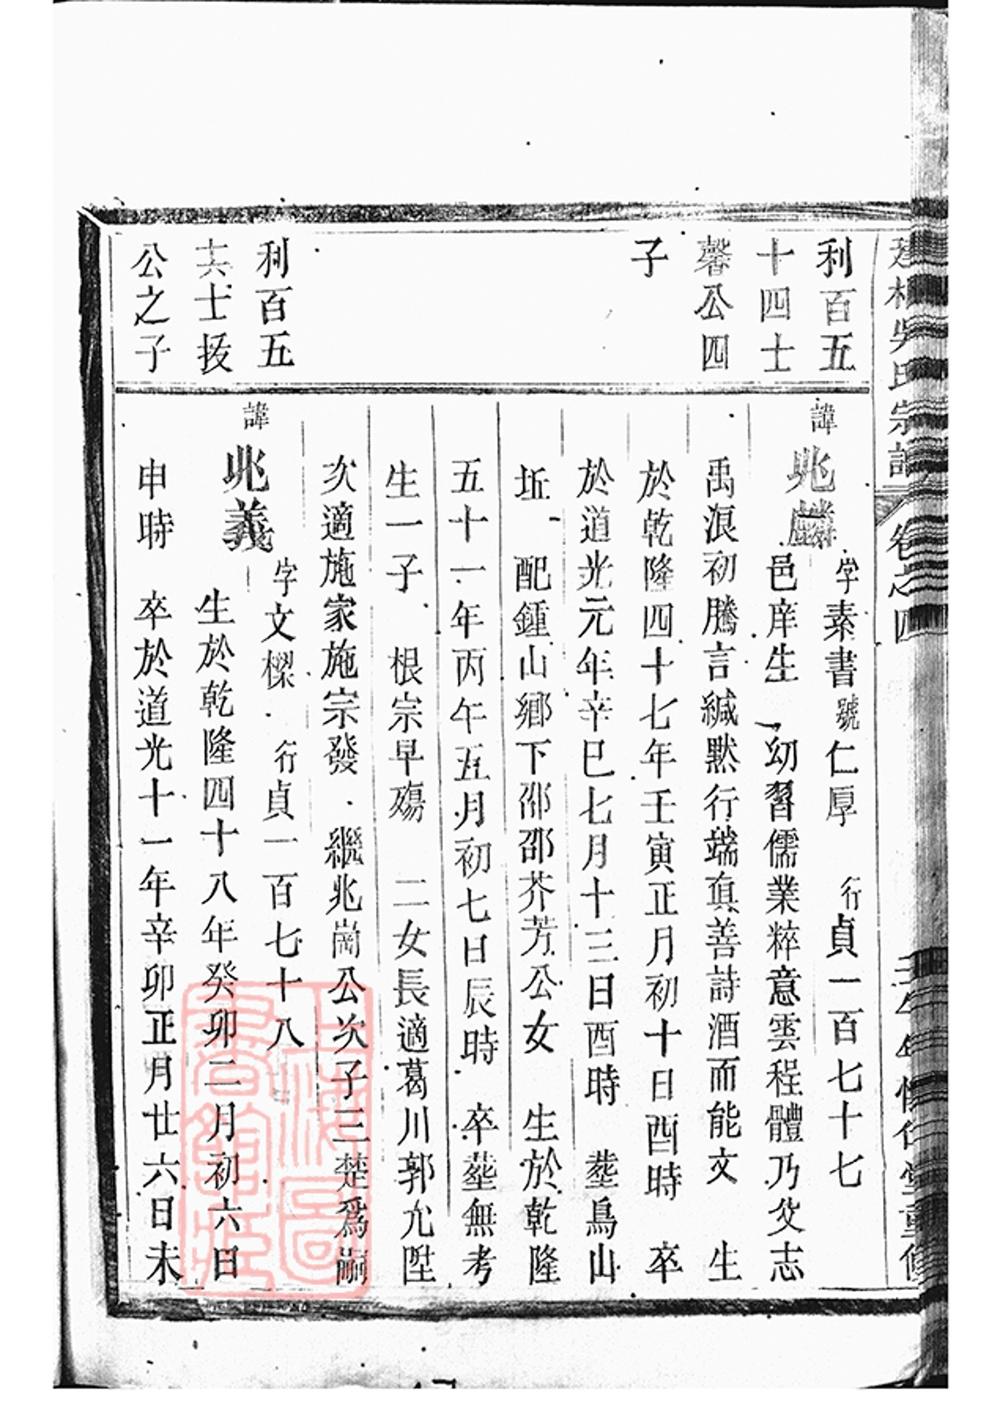 吳氏宗譜 卷之四
利百五
十四士
馨公四
子
諱兆麟 字素書 號仁厚 行貞一百七十七
邑庠生 幼習儒業粹意雲程體乃父志
禹浪初騰言緘默行端眞善詩酒而能文 生
於乾隆四十七年壬寅正月初十日酉時 卒
於道光元年辛巳七月十三日酉時 塟鳥山
坵 配鍾山鄉下邵邵芥芳公女 生於乾隆
五十一年丙午五月初七日辰時 卒塟無考
生一子 根宗早殤 二女長適葛川郭允陞
次適施家施宗發 繼兆崗公次子三楚爲嗣
利百五
士抜
公之子
諱兆義 字文樑 行貞一百七十八
生於乾隆四十八年癸卯二月初六日
申時 卒於道光十一年辛卯正月廿六日未
上海圖書館藏